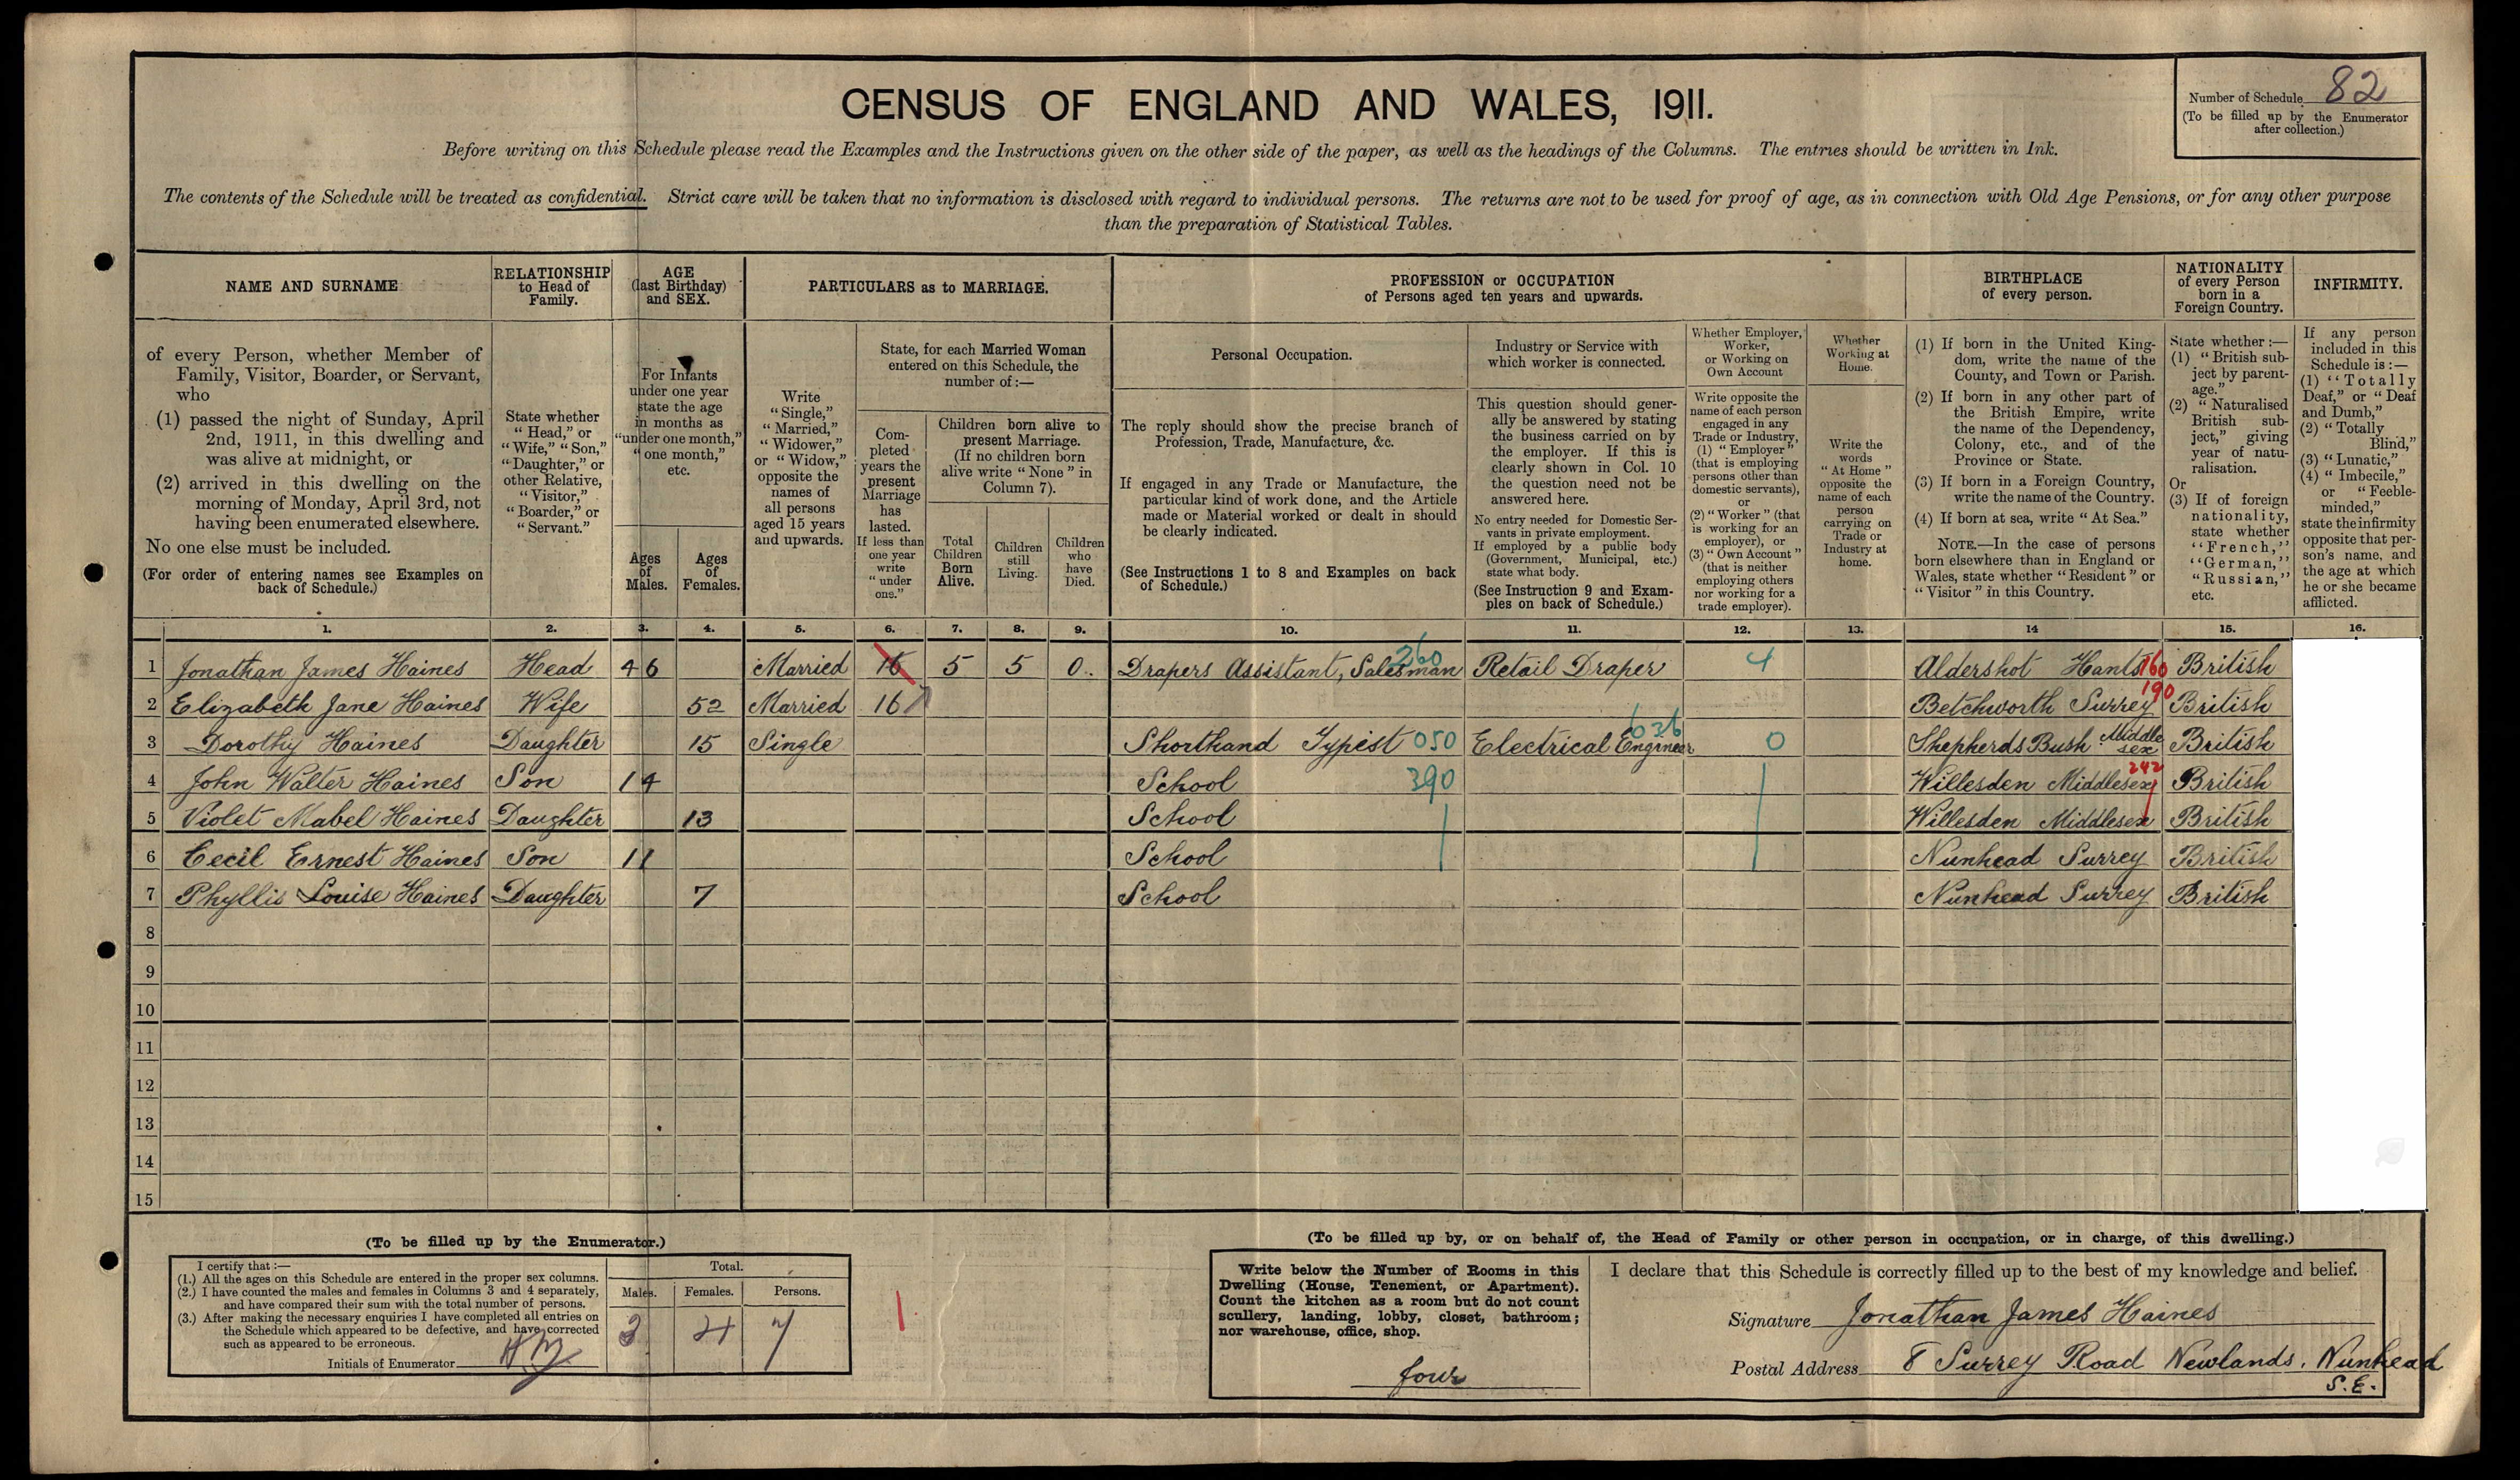 CENSUS OF ENGLAND AND WALES, 1911.
Number of Schedule 82
(To be filled up by the Enumerator
after collection.)
Before writing on this Schedule please read the Examples and the Instructions given on the other side of the paper, as well as the headings of the Columns. The entries should be written in Ink.
The contents of the Schedule will be treated as confidential. Strict care will be taken that no information is disclosed with regard to individual persons. The returns are not to be used for proof of age, as in connection with Old Age Pensions, or for any other purpose
than the preparation of Statistical Tables.
NAME AND SURNAME
of every Person, whether Member of
Family, Visitor, Boarder, or Servant,
who
(1) passed the night of Sunday, April
2nd, 1911, in this dwelling and
was alive at midnight, or
(2) arrived in this dwelling on the
morning of Monday, April 3rd, not
having been enumerated elsewhere.
No one else must be included.
(For order of entering names see Examples on
back of Schedule.)
RELATIONSHIP
to Head of
Family.
State whether
"Head," or
"Wife," "Son,"
"Daughter," or
other Relative,
"Visitor,"
"Boarder," or
"Servant."
AGE
(last Birthday)
and SEX.
For Infants
under one year
state the age
in months as
"under one month,"
"one month,"
etc.
Ages
of
Males.
Ages
of
Females.
PARTICULARS as to MARRIAGE.
Write
"Single,"
"Married,"
"Widower,"
or "Widow,"
opposite the
names of
all persons
aged 15 years
and upwards.
State, for each Married Woman
entered on this Schedule, the
number of:—
Com-
pleted
years the
present
Marriage
has
lasted.
If less than
one year
write
"under
one."
Children born alive to
present Marriage.
(If no children born
alive write "None" in
Column 7).
Total
Children
Born
Alive.
Children
still
Living.
Children
who
have
Died.
PROFESSION or OCCUPATION
of Persons aged ten years and upwards.
Personal Occupation.
The reply should show the precise branch of
Profession, Trade, Manufacture, &c.
If engaged in any Trade or Manufacture, the
particular kind of work done, and the Article
made or Material worked or dealt in should
be clearly indicated.
(See Instructions 1 to 8 and Examples on back
of Schedule.)
Industry or Service with
which worker is connected.
This question should gener-
ally be answered by stating
the business carried on by
the employer. If this is
clearly shown in Col. 10
the question need not be
answered here.
No entry needed for Domestic Ser-
vants in private employment.
If employed by a public body
(Government, Municipal, etc.)
state what body.
(See Instruction 9 and Exam-
ples on back of Schedule.)
Whether Employer,
Worker,
or Working on
Own Account
Write opposite the
name of each person
engaged in any
Trade or Industry,
(1) "Employer"
(that is employing
persons other than
domestic servants),
or
(2) "Worker" (that
is working for an
employer), or
(3) "Own Account"
(that is neither
employing others
nor working for a
trade employer).
Whether
Working at
Home.
Write the
words
"At Home"
opposite the
name of each
person
carrying on
Trade or
Industry at
home.
BIRTHPLACE
of every person.
(1) If born in the United King-
dom, write the name of the
County, and Town or Parish.
(2) If born in any other part of
the British Empire, write
the name of the Dependency,
Colony, etc., and of the
Province or State.
(3) If born in a Foreign Country,
write the name of the Country.
(4) If born at sea, write "At Sea."
NOTE.—In the case of persons
born elsewhere than in England or
Wales, state whether "Resident" or
"Visitor" in this Country.
NATIONALITY
of every Person
born in a
Foreign Country.
State whether:—
(1) "British sub-
ject by parent-
age."
(2) "Naturalised
British sub-
ject," giving
year of natu-
ralisation.
Or
(3) If of foreign
nationality,
state whether
"French,"
"German,"
"Russian,"
etc.
INFIRMITY.
If any person
included in this
Schedule is:—
(1) "Totally
Deaf," or "Deaf
and Dumb,"
(2) "Totally
Blind,"
(3) "Lunatic,"
(4) "Imbecile,"
or "Feeble-
minded,"
state the infirmity
opposite that per-
son's name, and
the age at which
he or she became
afflicted.
1. 2. 3. 4. 5. 6. 7. 8. 9. 10. 11. 12. 13. 14 15. 16.
1 Jonathan James Haines Head 46 Married 16 5 5 0 Drapers Assistant, Salesman 260 Retail Draper 4 Aldershot Hants 160 British
2 Elizabeth Jane Haines Wife 52 Married 16 Betchworth Surrey 190 British
3 Dorothy Haines Daughter 15 Single Shorthand Typist 050 Electrical Engineer 636 0 Shepherds Bush Middlesex British
4 John Walter Haines Son 14 School 390 Willesden Middlesex 242 British
5 Violet Mabel Haines Daughter 13 School Willesden Middlesex British
6 Cecil Ernest Haines Son 11 School Nunhead Surrey British
7 Phyllis Louise Haines Daughter 7 School Nunhead Surrey British
8
9
10
11
12
13
14
15
(To be filled up by the Enumerator.)
I certify that:—
(1.) All the ages on this Schedule are entered in the proper sex columns.
(2.) I have counted the males and females in Columns 3 and 4 separately,
and have compared their sum with the total number of persons.
(3.) After making the necessary enquiries I have completed all entries on
the Schedule which appeared to be defective, and have corrected
such as appeared to be erroneous.
Initials of Enumerator
Total.
Males. Females. Persons.
3 4 7
(To be filled up by, or on behalf of, the Head of Family or other person in occupation, or in charge, of this dwelling.)
Write below the Number of Rooms in this
Dwelling (House, Tenement, or Apartment).
Count the kitchen as a room but do not count
scullery, landing, lobby, closet, bathroom;
nor warehouse, office, shop.
four
I declare that this Schedule is correctly filled up to the best of my knowledge and belief.
Signature Jonathan James Haines
Postal Address 8 Surrey Road Newlands. Nunhead
S.E.